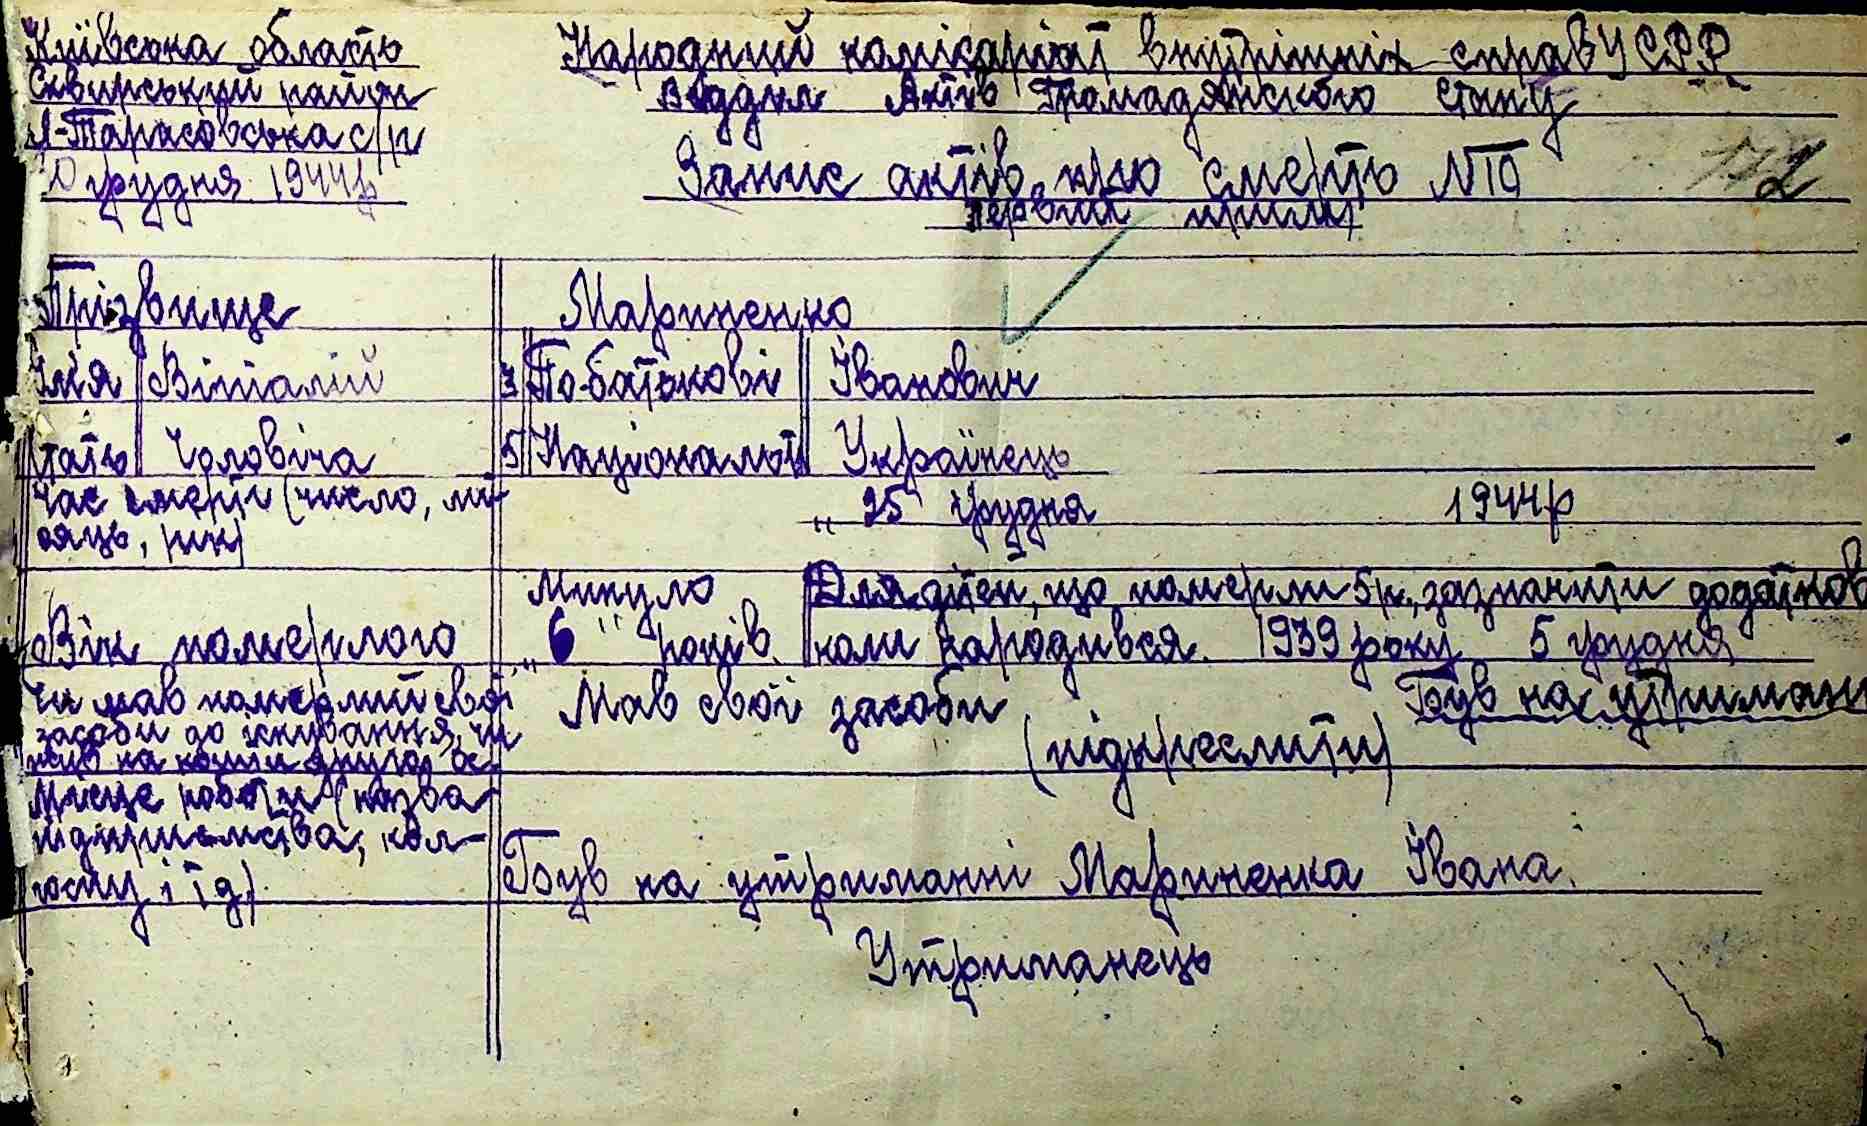 Київська область
Сквирський район
Я-Тарасовська с/р
Грудня 1944р
Народний комісаріат внутрішніх справ УСРР
Віддил Актів Громадянского Стану
Запис актів про смерть N10
172
первий примір
Прізвище Мариненко
Імя Віталий 3 По-батькові Іванович
стать Чоловіча 5 Національ Українець
Час смерти (число, мі-
сяць, рік)
„25" Грудня 1944р
Вік померлого
Минуло
„6" років
Для дітей, що померли 5 р., зазначити додатков
коли народився. 1939 року 5 грудня
Чи мав померлий свої
засоби до існування, чи
жив на кошти других ос.
Мав свої засоби Був на утриман
(підкреслити)
Місце роботи (назва
підприємства, кол-
госпу і т д)
Був на утриманні Мариненка Івана.
Утриманець